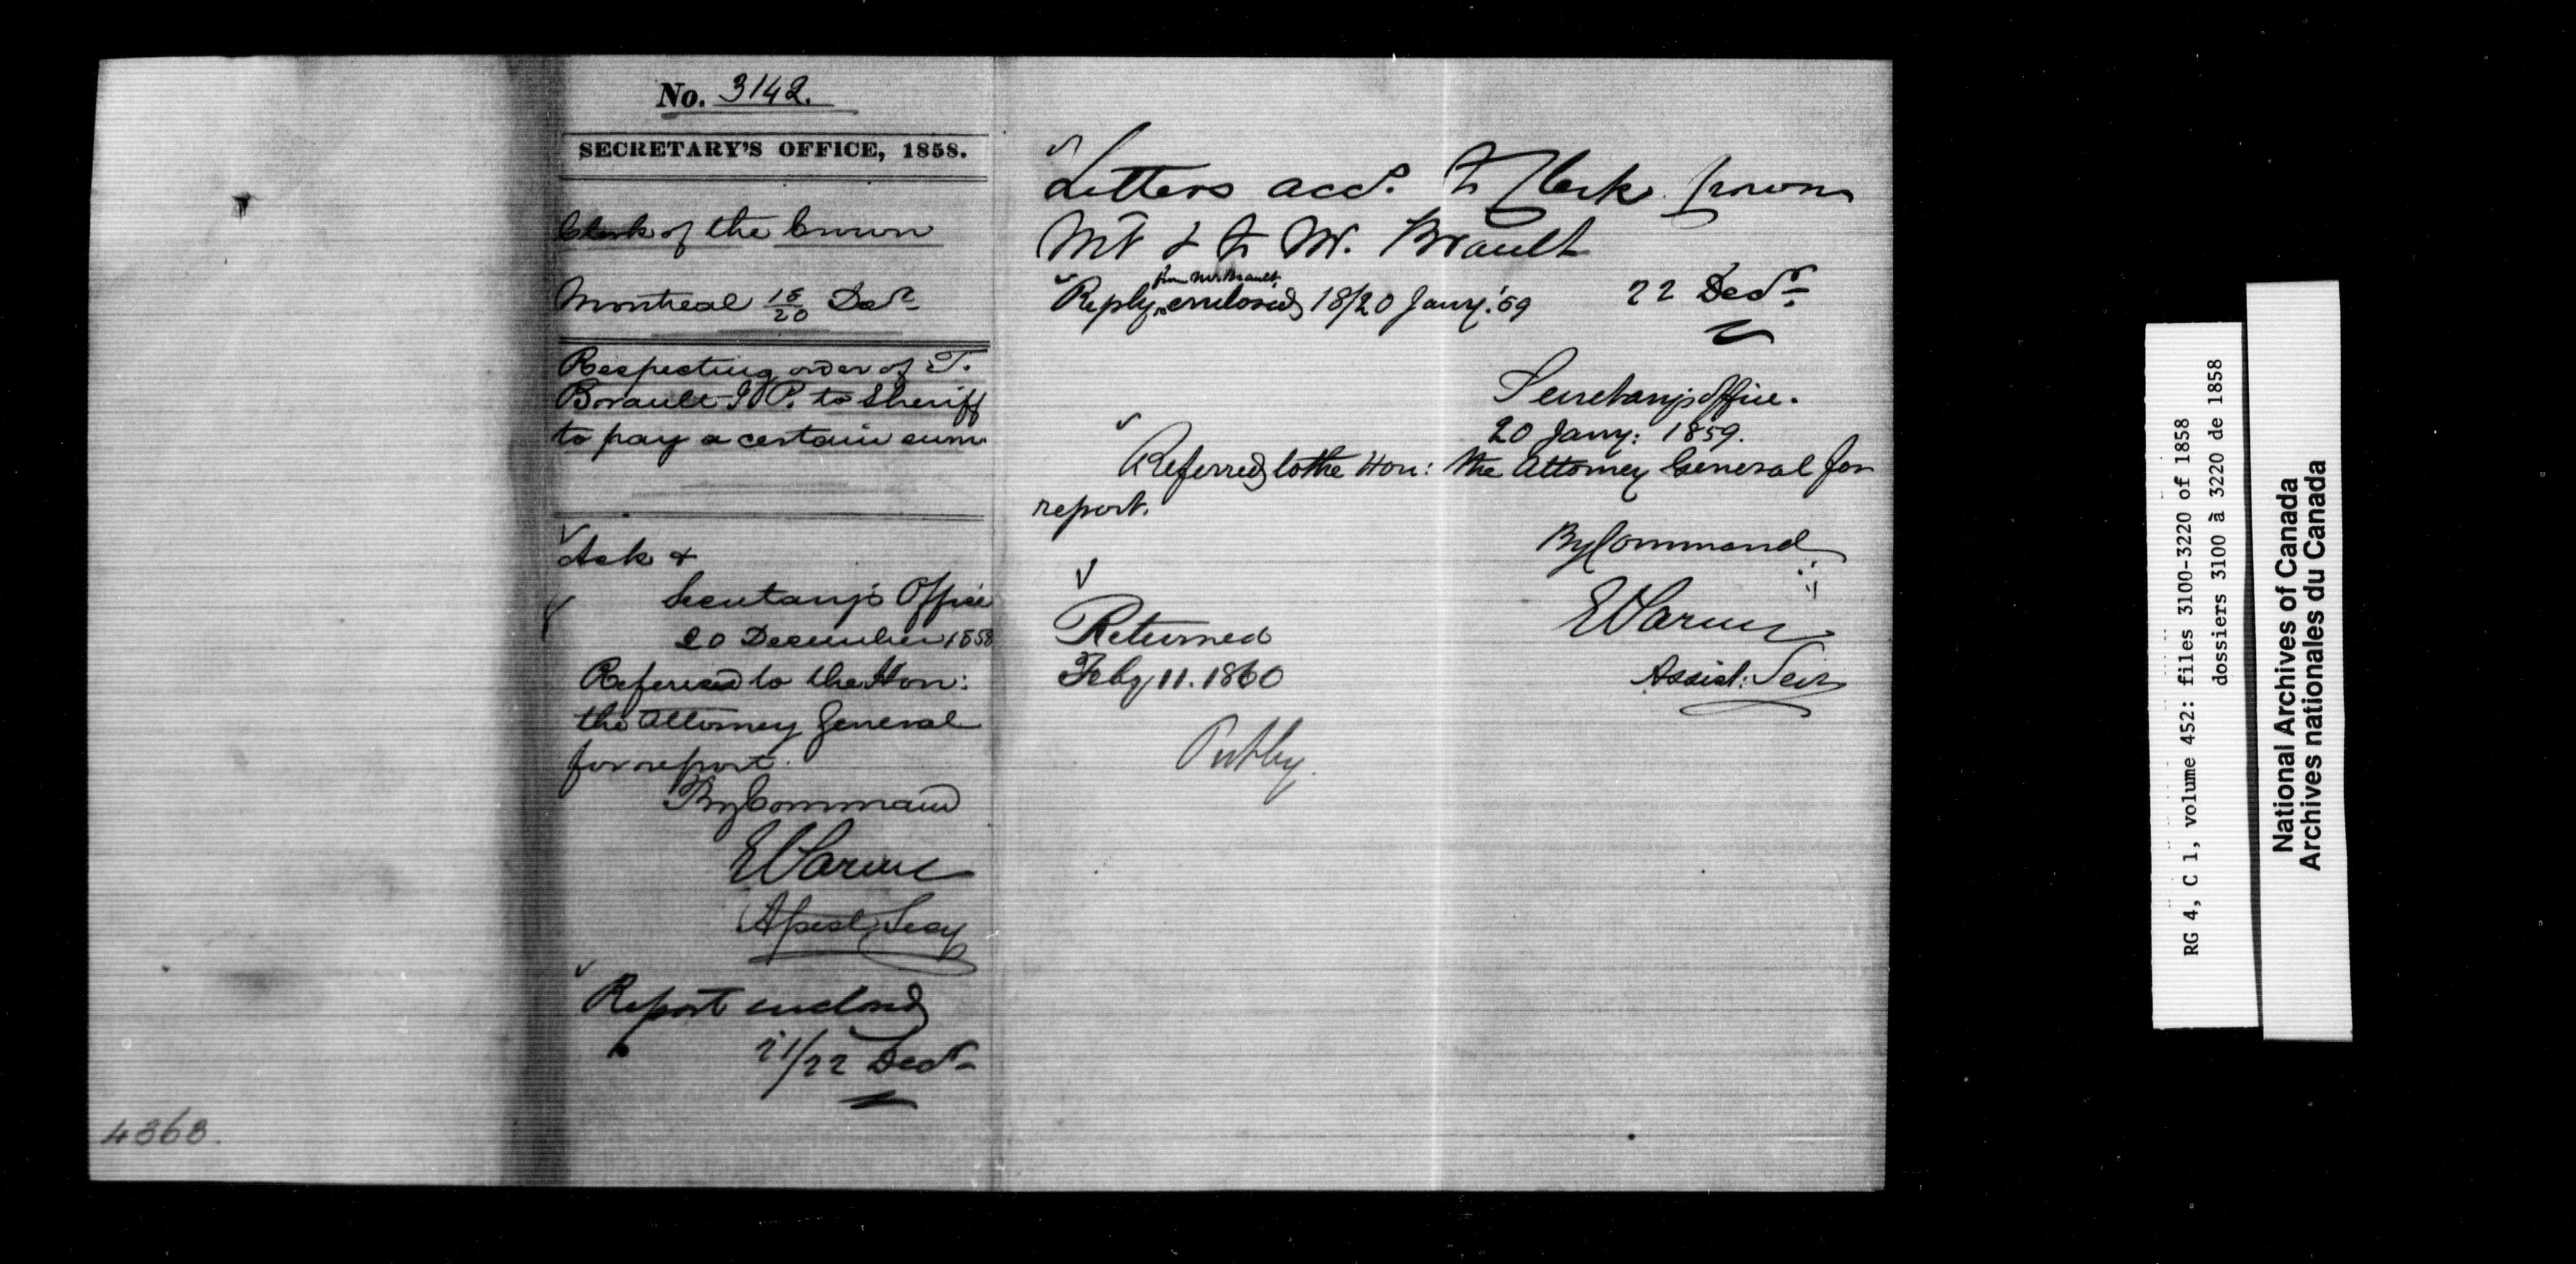 No. 3142.
SECRETARY'S OFFICE, 1858.
Clerk of the Crown
Montreal 18/20 Decr
Respecting order of T.
Brault J.P. to Sheriff
to pay a certain sum
Ack &
Secretary's Office
20 December 1858
Referred to the Hon:
the Attorney General
for report.
By Command
E Parent
Assist Secy
Report enclosed
21/22 Decr
4363.
Letters accd. to Clerk Crown
Mt & to Mr. Brault
22 Decr
from Mr. Brault,
Reply enclosed 18/20 Jany. '59
Secretary's Office.
20 Jany: 1859.
Referred to the Hon: the Attorney General for
report.
By Command
E Parent
Assist: Secy
Returned
Feby 11. 1860
Put by.
RG 4, C 1, volume 452: files 3100-3220 of 1858
dossiers 3100 à 3220 de 1858
National Archives of Canada
Archives nationales du Canada